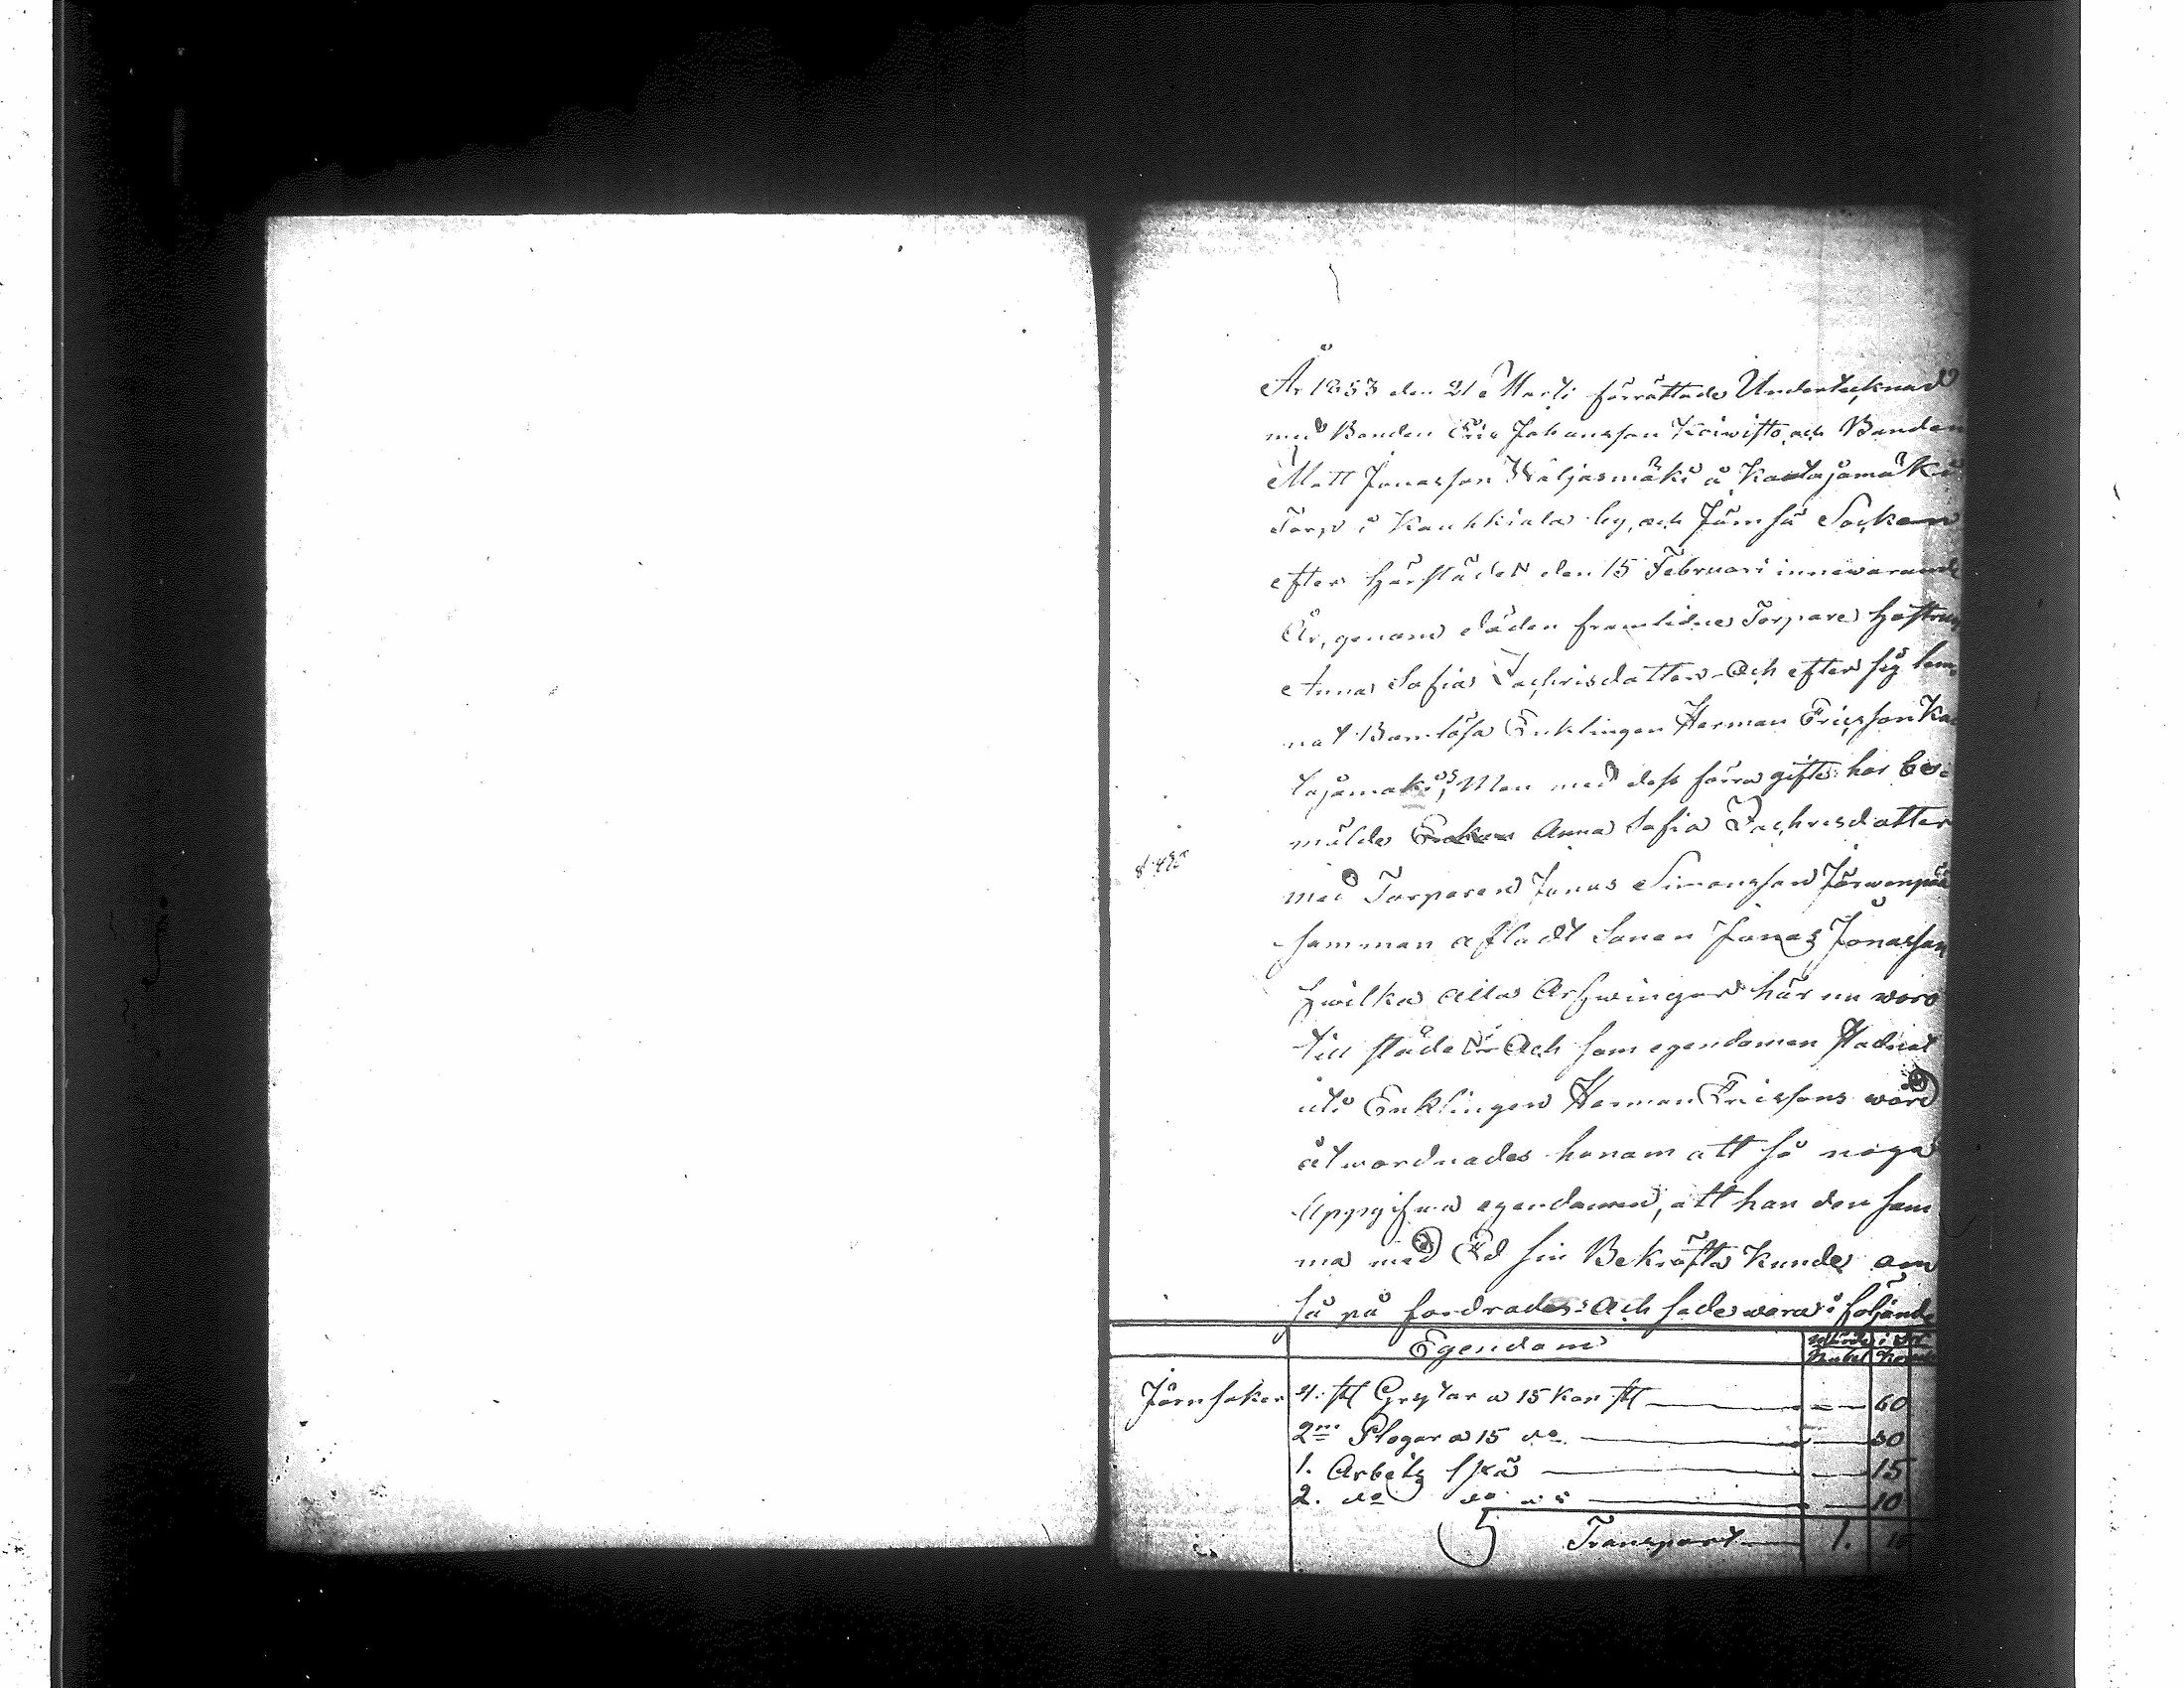 År 1853 den 21 Marti förrättade Undertecknad
med Bonden Eric Johansson Koiwisto och Bonden
Matt Jonasson Häljasmäki å Kaatajamäki
Torp i Kauhkiala by, och Jämsä Socken
efter härstädes den 15 Februari innewarande
År, genom döden framlidne Torpare hustrun
Anna Sofia Zachrisdotter Och efter sig lem-
nat Barnlösa Enklingen Herman Ericsson Kaa
tajamäki, Men med dess förra gifte har be-
mälde Enkan Anna Sofia Zachrisdotter
med Torparen Jonas Simonsson Järwenpää
samman afladt Sonen Jonas Jonasson
hwilka alla Arfwingar här nu woro
till städes Och som egendomen stadnat
uti Enklingen Herman Ericssons wård
åtwordnades honom att så noga
Uppgifwa egendomen, att han den sam
ma med Ed sin Bekräfta Kunde, om
så på fordrades: Och sade wara i följande
Egendom
Rubel
Järnsaker 4. st Grytor a 15 kop st 60
2ne Plogar a 15 do 30
1. Arbets 15
2. do do a 5 10
Transport 1. 15